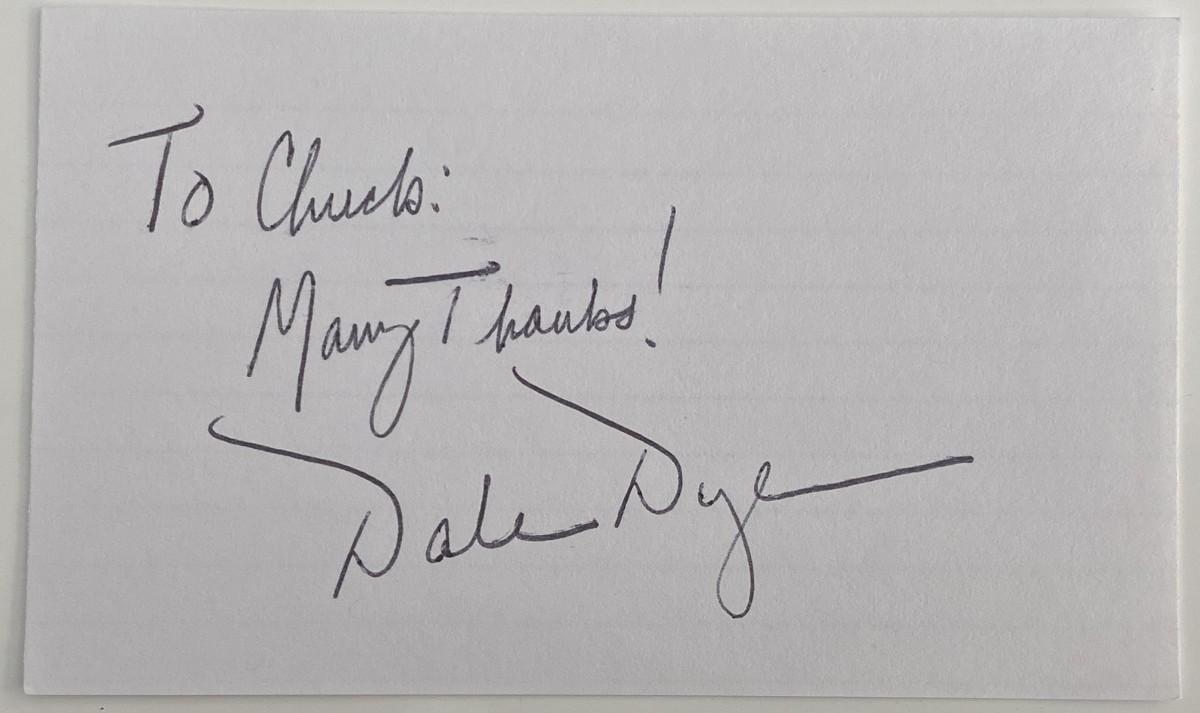 To Chuck:
Many Thanks!
Dale Dye